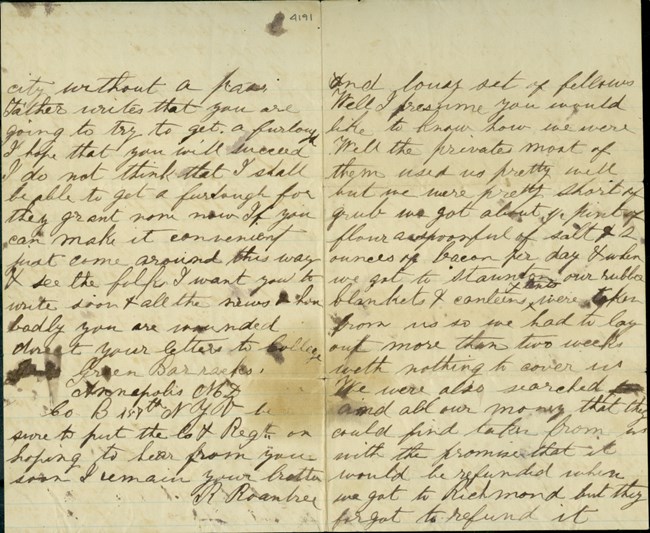 4191
city without a pass
Father writes that you are
going to try to get a furlough
I hope that you will succeed
I do not think that I shall
be able to get a furlough for
they grant none now If you
can make it convenient
just come around this way
& see the folks I want you to
write soon & all the news & how
badly you are wounded
direct your letters to College
Green Barracks,
Annapolis Md
Co B N Y V be
sure to put the Co & Regt on
hoping to hear from you
soon I remain your brother
R Roantree
and lousy set of fellows
Well I presume you would
like to know how we were
Well the privates most of
them used us pretty well
but we were pretty short of
grub we got about pint of
flour a spoonful of salt & 2
ounces of bacon per day & when
we got to Staunton our rubber
blankets & canteens were taken
from us so we had to lay
out more than two weeks
with nothing to cover us
We were also searched
and all our money that they
could find taken from us
with the promise that it
would be refunded when
we got to Richmond but they
forgot to refund it